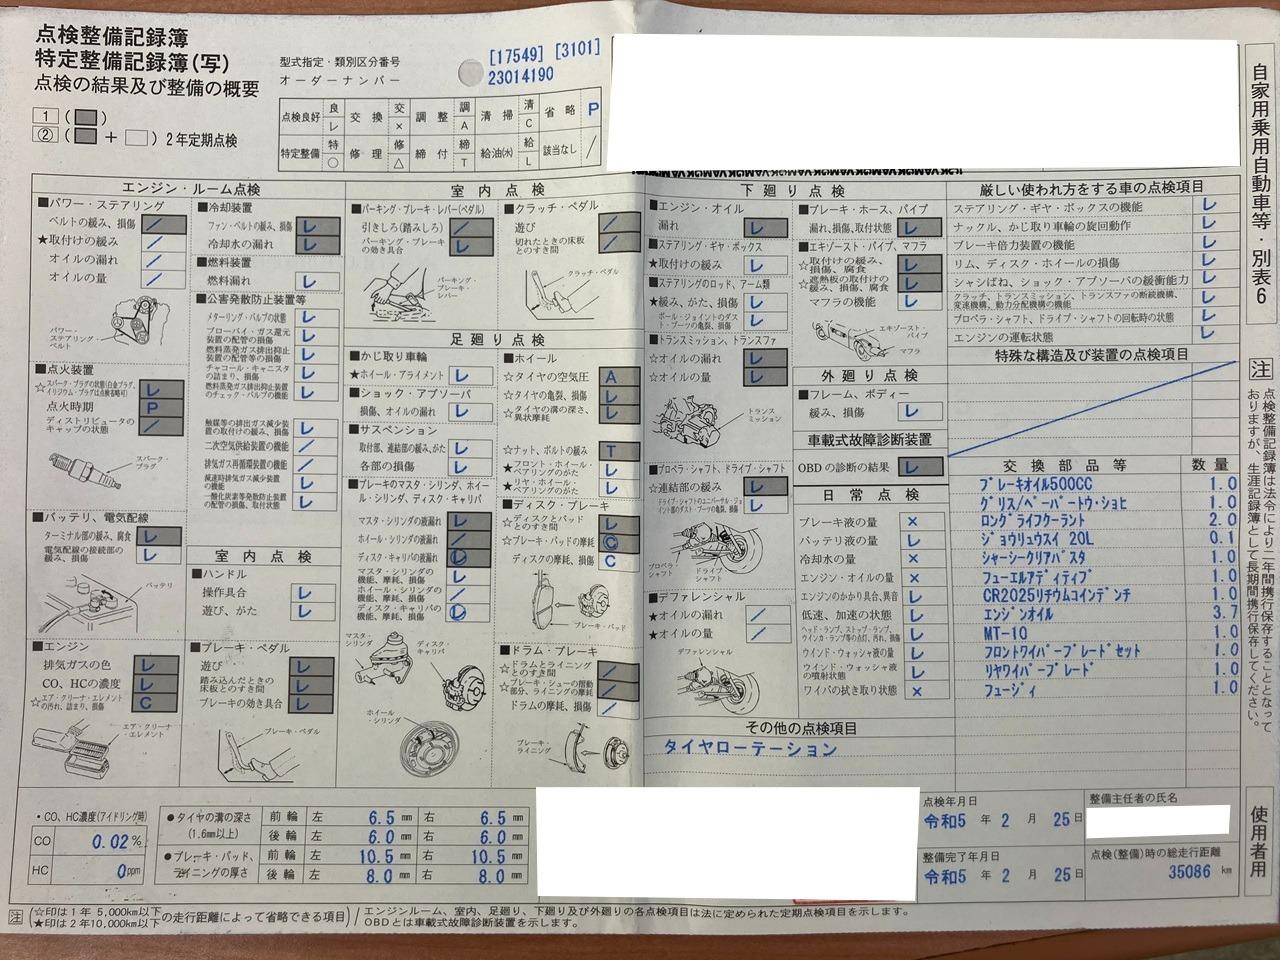 点検整備記録簿
特定整備記録簿(写)
点検の結果及び整備の概要
1 ( )
② ( + ) 2年定期点検
型式指定・類別区分番号 [17549] [3101]
オーダーナンバー 23014190
点検良好 良 レ 交換 交 × 調整 調 A 清掃 清 C 省略 P
特定整備 特 ○ 修理 修 △ 締付 締 T 給油(水) 給 L 該当なし /
自家用乗用自動車等・別表6
エンジン・ルーム点検
■パワー・ステアリング
ベルトの緩み、損傷 /
★取付けの緩み /
オイルの漏れ /
オイルの量 /
パワー・ステアリング ベルト
■点火装置
☆スパーク・プラグの状態(白金プラグ、イリジウム・プラグは点検省略可) レ
点火時期 P
ディストリビュータのキャップの状態 /
スパーク・プラグ
■バッテリ、電気配線
ターミナル部の緩み、腐食 レ
電気配線の接続部の緩み、損傷 レ
バッテリ
■エンジン
排気ガスの色 レ
CO、HCの濃度 レ
☆エア・クリーナ・エレメントの汚れ、詰まり、損傷 C
エア・クリーナ・エレメント
■冷却装置
ファン・ベルトの緩み、損傷 レ
冷却水の漏れ レ
■燃料装置
燃料漏れ レ
■公害発散防止装置等
メターリング・バルブの状態 レ
ブローバイ・ガス還元装置の配管の損傷 レ
燃料蒸発ガス排出抑止装置の配管等の損傷 レ
チャコール・キャニスタの詰まり、損傷 レ
燃料蒸発ガス排出抑止装置のチェック・バルブの機能 レ
触媒等の排出ガス減少装置の取付けの緩み、損傷 レ
二次空気供給装置の機能 /
排気ガス再循環装置の機能 /
減速時排気ガス減少装置の機能 レ
一酸化炭素等発散防止装置の配管の損傷、取付状態 レ
室内点検
■ハンドル
操作具合 レ
遊び、がた レ
■ブレーキ・ペダル
遊び レ
踏み込んだときの床板とのすき間 レ
ブレーキの効き具合 レ
ブレーキ・ペダル
室内点検
■パーキング・ブレーキ・レバー(ペダル)
引きしろ(踏みしろ) /
パーキング・ブレーキの効き具合 レ
パーキング・ブレーキ・レバー
■クラッチ・ペダル
遊び /
切れたときの床板とのすき間 /
クラッチ・ペダル
足廻り点検
■かじ取り車輪
★ホイール・アライメント レ
■ショック・アブソーバ
損傷、オイルの漏れ レ
■サスペンション
取付部、連結部の緩み、がた レ
各部の損傷 レ
■ブレーキのマスタ・シリンダ、ホイール・シリンダ、ディスク・キャリパ
マスタ・シリンダの液漏れ レ
ホイール・シリンダの液漏れ /
ディスク・キャリパの液漏れ レ
マスタ・シリンダの機能、摩耗、損傷 レ
ホイール・シリンダの機能、摩耗、損傷 /
ディスク・キャリパの機能、摩耗、損傷 レ
マスタ・シリンダ
ディスク・キャリパ
ホイール・シリンダ
■ホイール
☆タイヤの空気圧 A
☆タイヤの亀裂、損傷 レ
☆タイヤの溝の深さ、異状摩耗 レ
☆ナット、ボルトの緩み T
★フロント・ホイール・ベアリングのがた レ
★リヤ・ホイール・ベアリングのがた レ
■ディスク・ブレーキ
☆ディスクとパッドとのすき間 レ
☆ブレーキ・パッドの摩耗 C
ディスクの摩耗、損傷 C
ブレーキ・パッド
■ドラム・ブレーキ
☆ドラムとライニングとのすき間 /
☆ブレーキ・シューの摺動部分、ライニングの摩耗 /
ドラムの摩耗、損傷 /
ブレーキ・ライニング
下廻り点検
■エンジン・オイル
漏れ レ
■ステアリング・ギヤ・ボックス
★取付けの緩み レ
■ステアリングのロッド、アーム類
★緩み、がた、損傷 レ
ボール・ジョイントのダスト・ブーツの亀裂、損傷 レ
■トランスミッション、トランスファ
☆オイルの漏れ レ
☆オイルの量 レ
トランスミッション
■プロペラ・シャフト、ドライブ・シャフト
☆連結部の緩み レ
ドライブ・シャフトのユニバーサル・ジョイント部のダスト・ブーツの亀裂、損傷 レ
プロペラ・シャフト
ドライブ・シャフト
■デファレンシャル
★オイルの漏れ /
★オイルの量 /
デファレンシャル
■ブレーキ・ホース、パイプ
漏れ、損傷、取付状態 レ
■エキゾースト・パイプ、マフラ
☆取付けの緩み、損傷、腐食 レ
☆遮熱板の取付けの緩み、損傷、腐食 レ
マフラの機能 レ
エキゾースト・パイプ
マフラ
外廻り点検
■フレーム、ボディー
緩み、損傷 レ
車載式故障診断装置
OBDの診断の結果 レ
日常点検
ブレーキ液の量 ×
バッテリ液の量 レ
冷却水の量 ×
エンジン・オイルの量 ×
エンジンのかかり具合、異音 レ
低速、加速の状態 レ
ヘッド・ランプ、ストップ・ランプ、ウインカ・ランプ等の点灯、汚れ、損傷 レ
ウインド・ウォッシャ液の量 レ
ウインド・ウォッシャ液の噴射状態 レ
ワイパの拭き取り状態 ×
その他の点検項目
タイヤローテーション
厳しい使われ方をする車の点検項目
ステアリング・ギヤ・ボックスの機能 レ
ナックル、かじ取り車輪の旋回動作 レ
ブレーキ倍力装置の機能 レ
リム、ディスク・ホイールの損傷 レ
シャシばね、ショック・アブソーバの緩衝能力 レ
クラッチ、トランスミッション、トランスファの断続機構、変速機構、動力分配機構の機能 レ
プロペラ・シャフト、ドライブ・シャフトの回転時の状態 レ
エンジンの運転状態 レ
特殊な構造及び装置の点検項目
交換部品等 数量
ブレーキオイル500CC 1.0
グリス/ペーパートウ・ショヒ 1.0
ロングライフクーラント 2.0
ジョウリュウスイ 20L 0.1
シャーシークリアバスタ 1.0
フューエルアディティブ 1.0
CR2025リチウムコインデンチ 1.0
エンジンオイル 3.7
MT-10 1.0
フロントワイパーブレードセット 1.0
リヤワイパーブレード 1.0
フュージィ 1.0
注 点検整備記録簿は法令により二年間携行保存することとなっておりますが、生涯記録簿として長期間携行保存してください。
使用者用
・CO、HC濃度(アイドリング時)
CO 0.02 %
HC 0 ppm
●タイヤの溝の深さ(1.6mm以上) 前輪 左 6.5 mm 右 6.5 mm
後輪 左 6.0 mm 右 6.0 mm
●ブレーキ・パッド、ライニングの厚さ 前輪 左 10.5 mm 右 10.5 mm
後輪 左 8.0 mm 右 8.0 mm
点検年月日
令和5 年 2 月 25 日
整備完了年月日
令和5 年 2 月 25 日
整備主任者の氏名
点検(整備)時の総走行距離
35086 km
注 (☆印は1年 5,000km以下 ★印は2年10,000km以下 の走行距離によって省略できる項目)
エンジンルーム、室内、足廻り、下廻り及び外廻りの各点検項目は法に定められた定期点検項目を示します。
OBDとは車載式故障診断装置を示します。